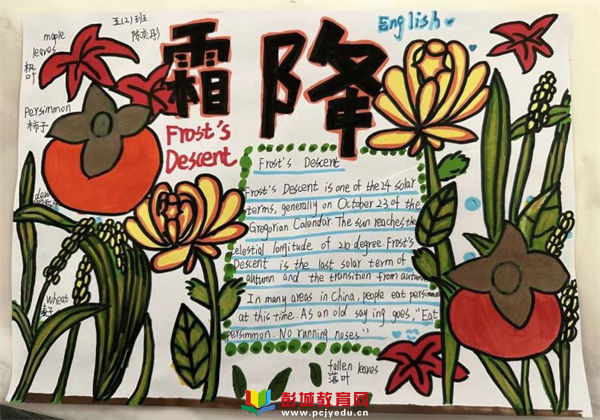 maple
leaves
枫
叶
五(2)班
English
霜降
Frost's
Descent
persimmon
柿子
Frost's Descent
Frost's Descent is one of the 24 solar
terms, generally on October 23 of the
Gregorian Calendar. The sun reaches the
celestial longitude of 210 degree. Frost's
Descent is the last solar term of
autumn and the transition from autum
In many areas in China, people eat persimmons
at this time. As an old saying goes, "Eat
persimmon. No running noses."
dew
wheat
麦子
fallen leaves
落叶
彭城教育网
www.pcjyedu.cn